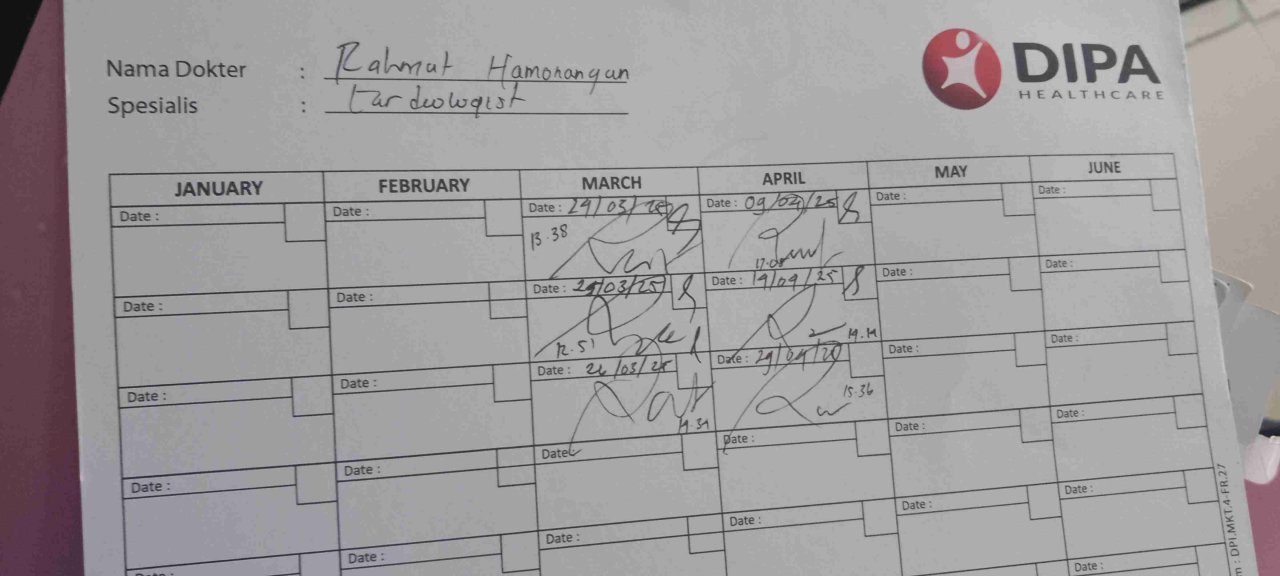 Nama Dokter : Rahmat Hamonangan
Spesialis : Kardeologist
DIPA
HEALTHCARE
JANUARY FEBRUARY MARCH APRIL MAY JUNE
Date : Date : Date : 29/03/25 Date : 09/04/25 Date : Date :
13.38 17.08
Date : Date : Date : 25/03/25 Date : 19/04/25 Date : Date :
12.51 14.14
Date : Date : Date : 26/03/25 Date : 29/04/25 Date : Date :
14.34 15.36
Date : Date : Date Date : Date : Date :
Date : Date : Date : Date : Date :
Date :
DPI.MKT.4-FR.27